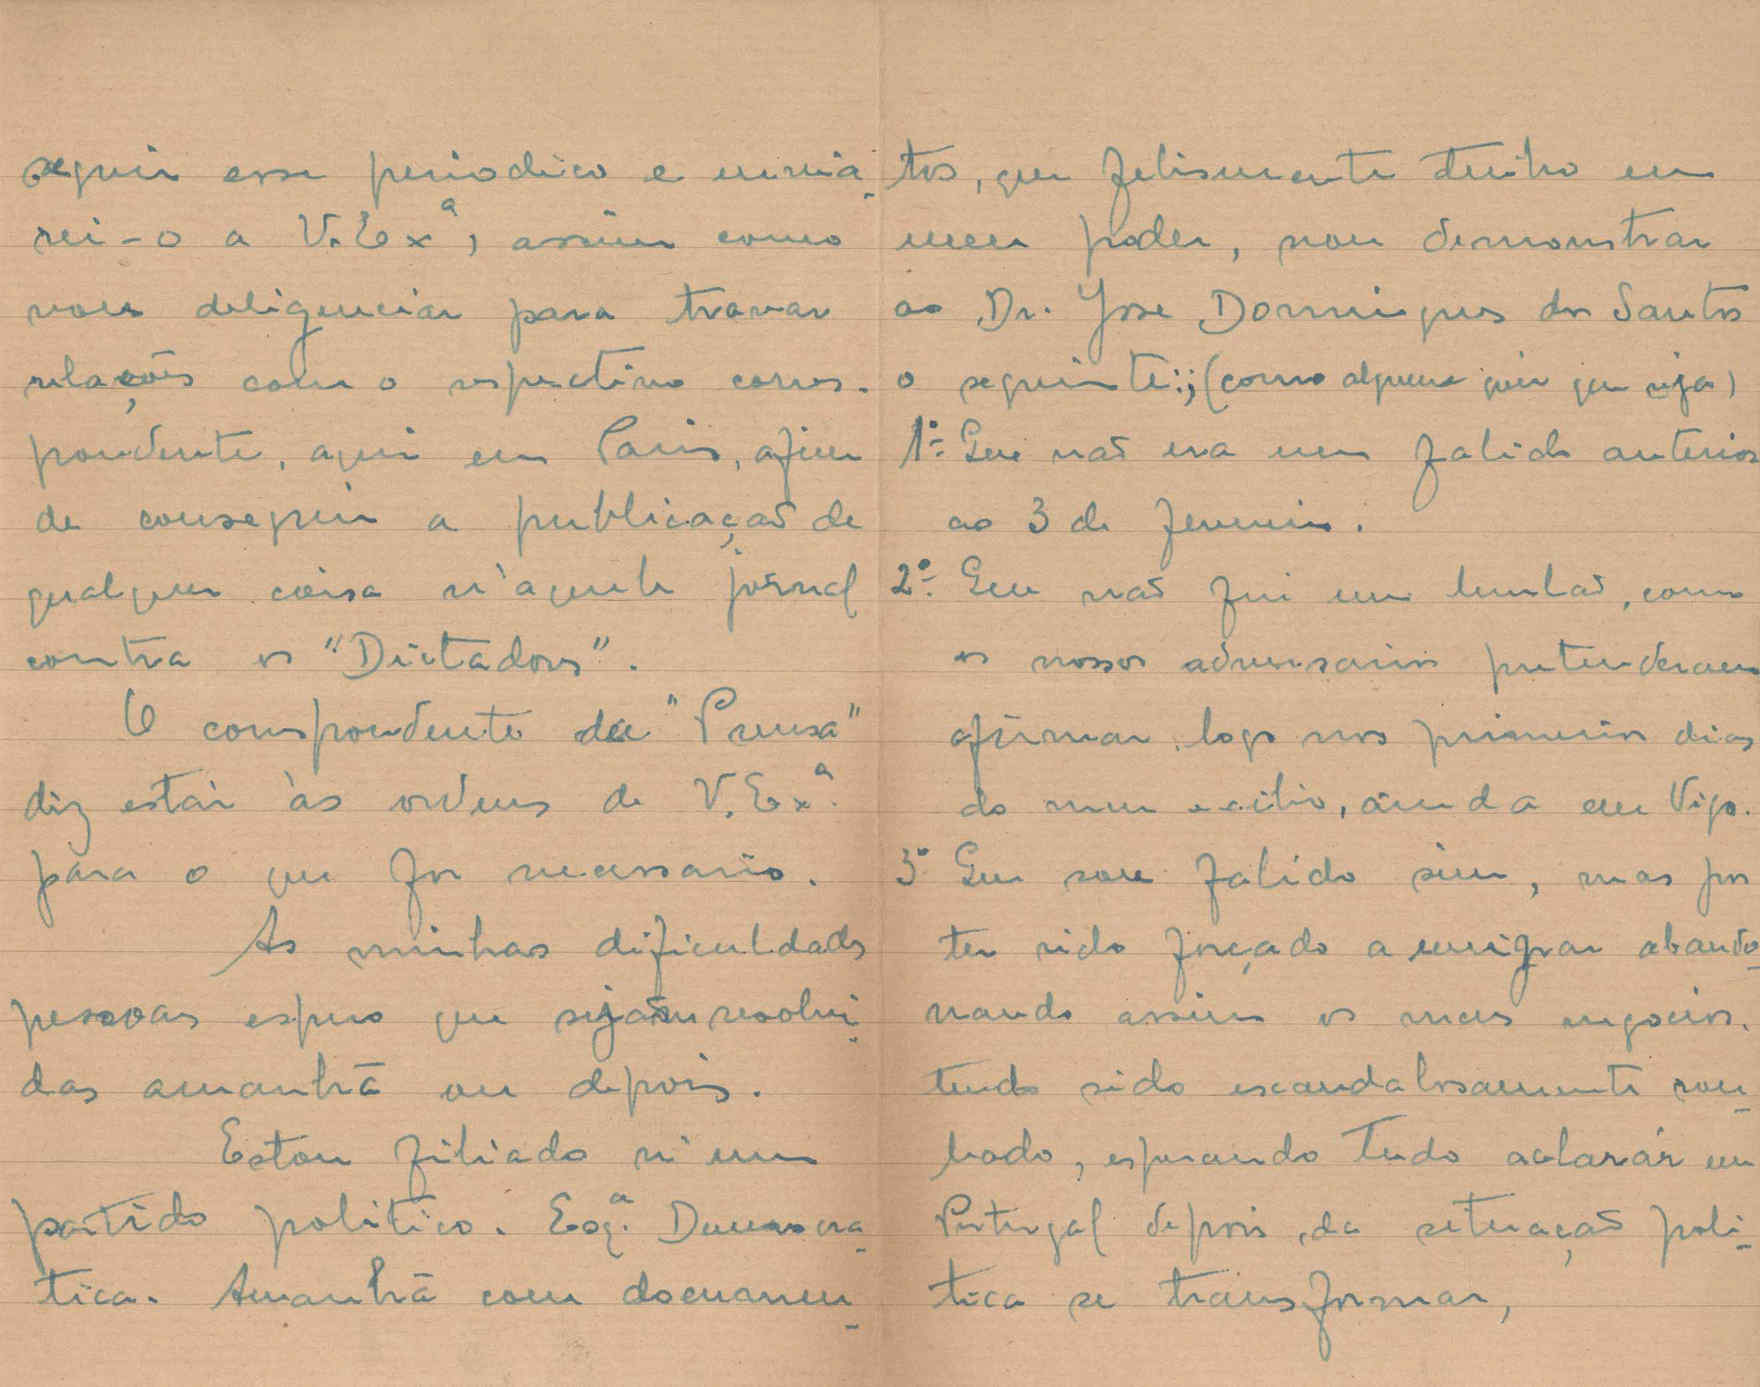 seguir esse periodico e envia-
rei-o a V. Exª, assim como
vou deligenciar para travar
relações com o respectivo corres-
pondente, aqui em Paris, afim
de conseguir a publicação de
qualquer coisa n'aquele jornal
contra os "Dictadores".
O correspondente da "Prensa"
diz estar às ordens de V. Exª.
para o que for necessario.
As minhas dificuldades
pessoas espero que sejam resolvi-
das amanhã ou depois.
Estou filiado n'um
partido politico. Esqª. Democra-
tica. Amanhã com documen-
tos, que felismente tenho em
meu poder, vou demonstrar
ao Dr. Jose Domingues dos Santos
o seguinte:; (como alguem quer que seja)
1º- Que não era um falido anterior
ao 3 de Fevereiro.
2º- Que não fui um bulão, como
os nossos adversarios pretenderam
afirmar logo nos primeiros dias
do meu exilio, ainda em Vigo.
3º Que sou falido sim, mas por
ter sido forçado a emigrar abando-
nando assim os meus negocios.
tendo sido escandalosamente rou-
bado, esperando tudo aclarár em
Portugal depois, da situação poli-
tica se transformar,